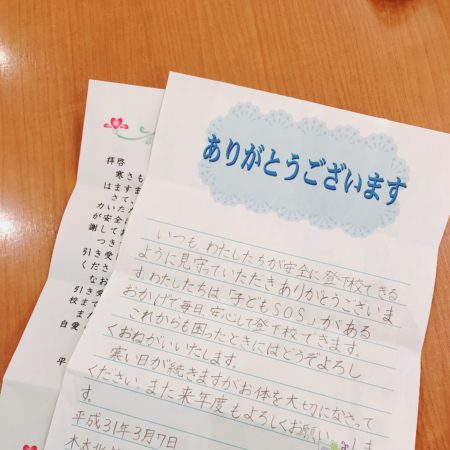 拝啓
寒さも
はますま
さて、
力いただ
が安全に
謝してお
つき
引き愛し
くださ
なお
引き愛
校まで
また
自愛
平
ありがとうございます
いつも、わたしたちが安全に登下校できる
ように見守っていただきありがとうございま
すわたしたちは「子どもSOS」がある
おかげで毎日、安心して登下校できます。
これからも困ったときにはどうぞよろし
くおねがいいたします。
寒い日が続きますがお体を大切になさって
ください。また来年度もよろしくお願い
しま
す。
平成31年3月7日